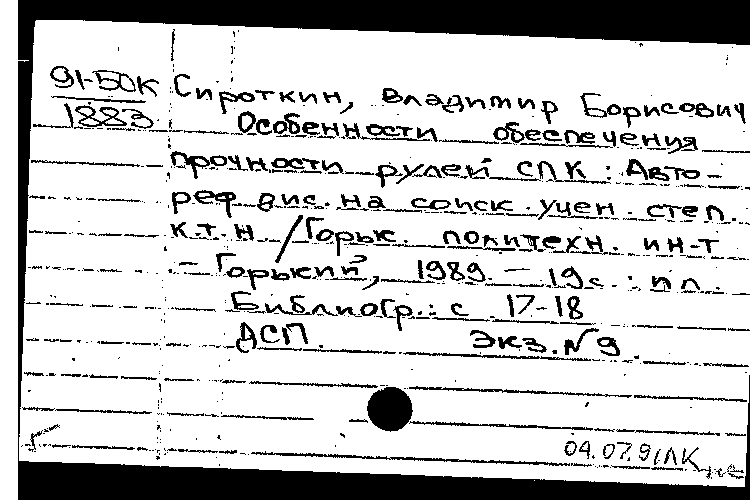 91-50К Сироткин, Владимир Борисович
1883 Особенности обеспечения
прочности рулей СПК : Авто-
реф дис. на соиск. учен. степ.
к.т.н. / Горьк. политехн. ин-т
- Горький, 1989. - 19с. : ил.
Библиогр.: с 17-18
ДСП. Экз. №9.
04.07.91